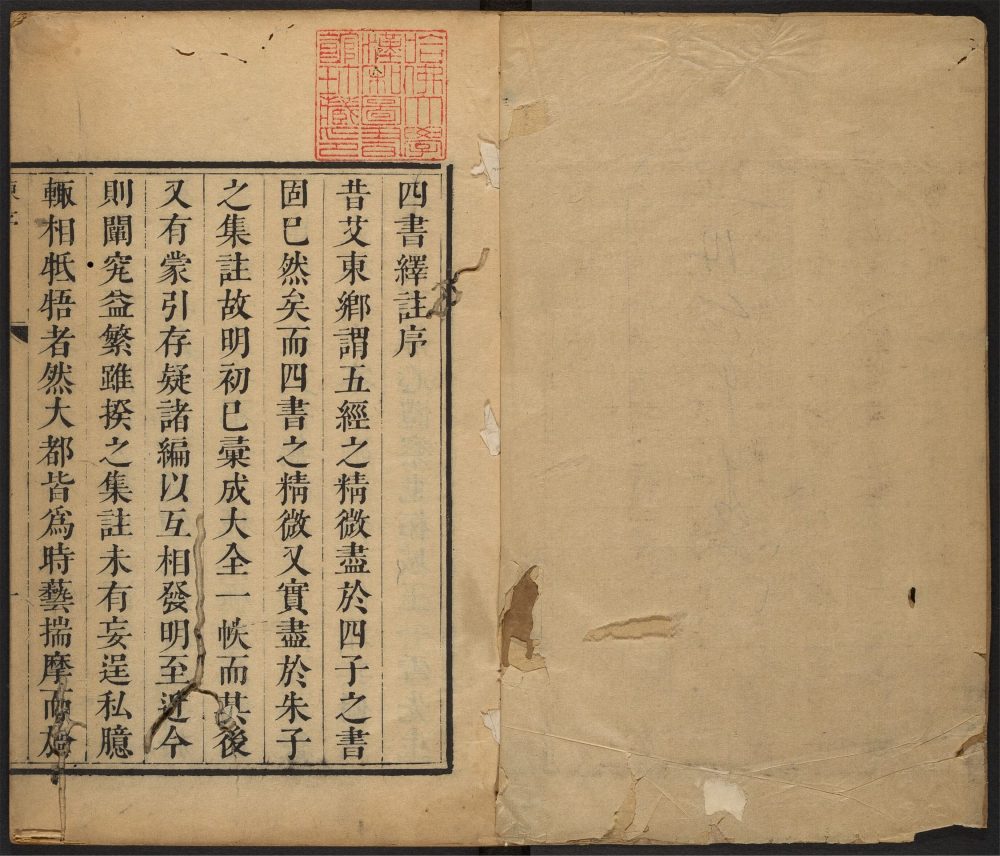 哈佛大學
漢和圖書
館珍藏印
四書繹註序
昔艾東鄉謂五經之精微盡於四子之書
固已然矣而四書之精微又實盡於朱子
之集註故明初已彙成大全一帙而其後
又有蒙引存疑諸編以互相發明至近今
則闡究益繁雖揆之集註未有妄逞私臆
輙相牴牾者然大都皆爲時藝揣摩而於